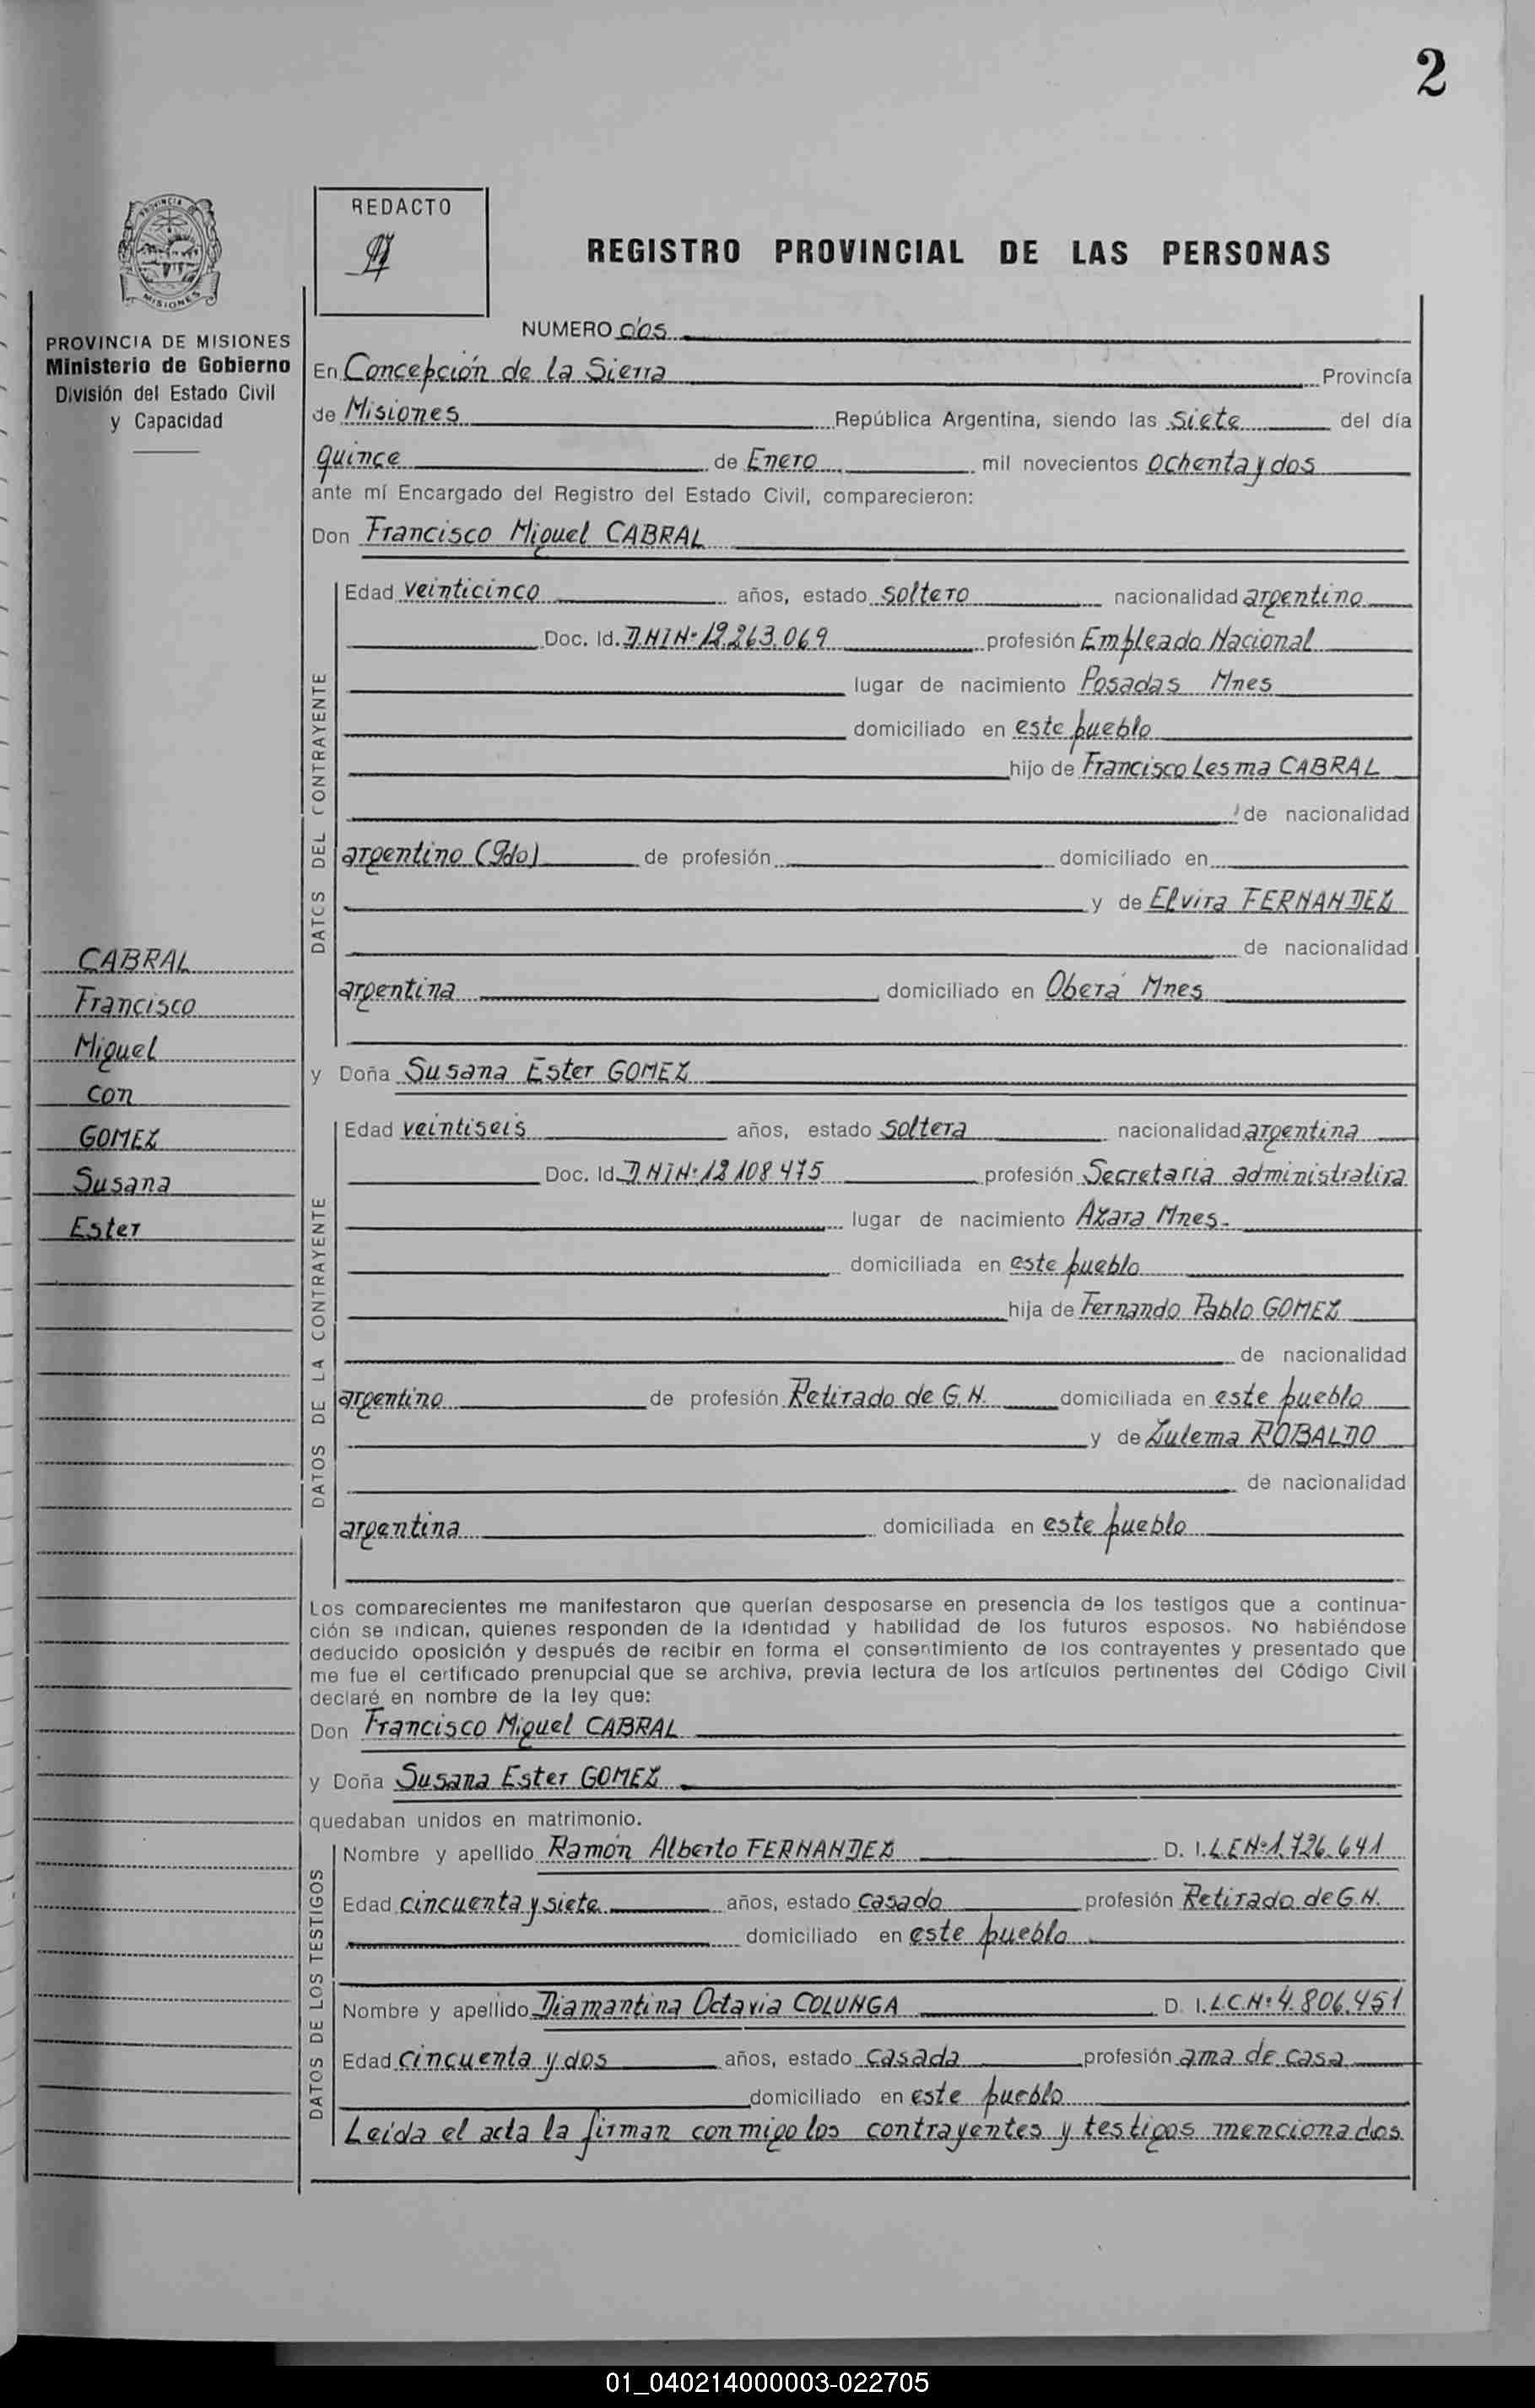 2
PROVINCIA DE
MISIONES
REDACTO
REGISTRO PROVINCIAL DE LAS PERSONAS
PROVINCIA DE MISIONES
Ministerio de Gobierno
División del Estado Civil
y Capacidad
NUMERO dos
En Concepción de la Sierra Provincia
de Misiones República Argentina, siendo las siete del día
quince de Enero mil novecientos ochenta y dos
ante mí Encargado del Registro del Estado Civil, comparecieron:
Don Francisco Miguel CABRAL
DATOS DEL CONTRAYENTE
Edad veinticinco años, estado soltero nacionalidad argentino
Doc. Id. DNI Nº 12.263.069 profesión Empleado Nacional
lugar de nacimiento Posadas Mnes
domiciliado en este pueblo
hijo de Francisco Lesma CABRAL
de nacionalidad
argentino (Fdo) de profesión domiciliado en
y de Elvira FERNANDEZ
de nacionalidad
argentina domiciliado en Oberá Mnes
CABRAL
Francisco
Miguel
con
GOMEZ
Susana
Ester
y Doña Susana Ester GOMEZ
DATOS DE LA CONTRAYENTE
Edad veintiseis años, estado soltera nacionalidad argentina
Doc. Id. DNI Nº 12 108 475 profesión Secretaria administrativa
lugar de nacimiento Azara Mnes.
domiciliada en este pueblo
hija de Fernando Pablo GOMEZ
de nacionalidad
argentino de profesión Retirado de G.N. domiciliada en este pueblo
y de Zulema ROBALDO
de nacionalidad
argentina domiciliada en este pueblo
Los comparecientes me manifestaron que querían desposarse en presencia de los testigos que a continua-
ción se indican, quienes responden de la identidad y habilidad de los futuros esposos. No habiéndose
deducido oposición y después de recibir en forma el consentimiento de los contrayentes y presentado que
me fue el certificado prenupcial que se archiva, previa lectura de los artículos pertinentes del Código Civil
declaré en nombre de la ley que:
Don Francisco Miguel CABRAL
y Doña Susana Ester GOMEZ
quedaban unidos en matrimonio.
DATOS DE LOS TESTIGOS
Nombre y apellido Ramón Alberto FERNANDEZ D. I. L.E Nº 1.726.641
Edad cincuenta y siete años, estado casado profesión Retirado de G.N.
domiciliado en este pueblo
Nombre y apellido Diamantina Octavia COLUNGA D. I. L.C Nº 4.806.451
Edad cincuenta y dos años, estado casada profesión ama de casa
domiciliado en este pueblo
Leída el acta la firman conmigo los contrayentes y testigos mencionados
01_040214000003-022705